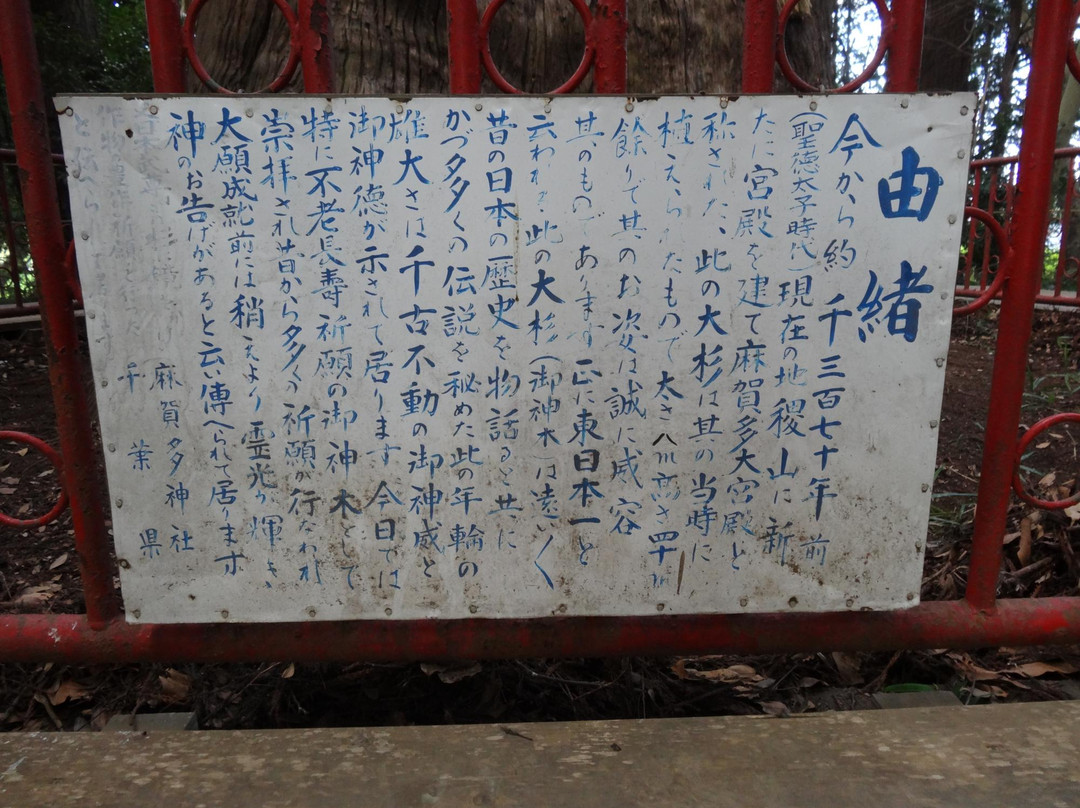 由緒
今から約千三百七十年前
（聖徳太子時代）現在の地稷山に新
たに宮殿を建て麻賀多大宮殿と
称された、此の大杉は其の当時に
植えられたもので太さ八m高さ四十m
餘りで其のお姿は誠に威容
其のものであります正に東日本一と
云われる此の大杉（御神木）は遠い
昔の日本の歴史を物語ると共に
かづ多々くの伝説を秘めた此の年輪の
雄大さは千古不動の御神威と
御神徳が示されて居ります今日では
特に不老長壽祈願の御神木として
崇拝され昔から多々くの祈願が行なわれ
大願成就前には稍こえより霊光が輝き
神のお告げがあると云い傳へられて居ります
麻賀多神社
千葉県